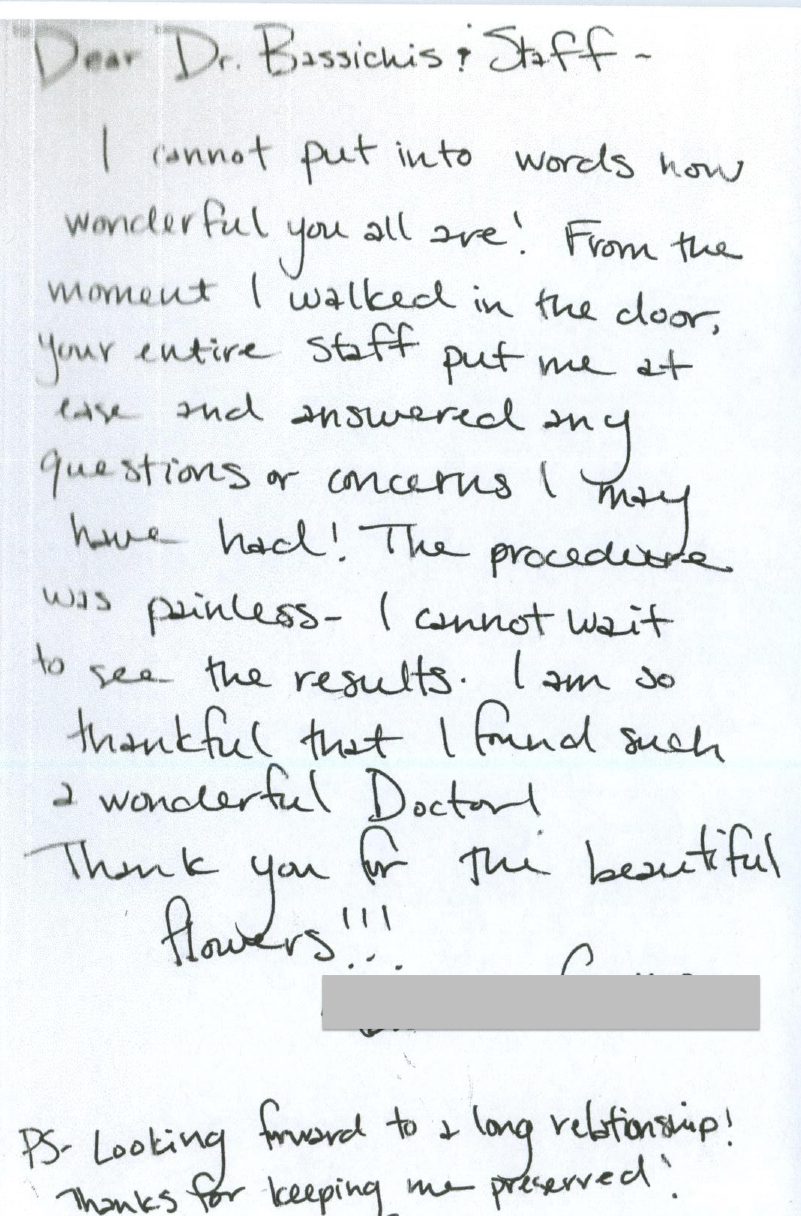 Dear Dr. Bassichis & Staff -
I cannot put into words how
wonderful you all are! From the
moment I walked in the door,
your entire staff put me at
ease and answered any
questions or concerns I may
have had! The procedure
was painless- I cannot wait
to see the results. I am so
thankful that I found such
a wonderful Doctor!
Thank you for the beautiful
flowers!!!
PS- Looking forward to a long relationship!
Thanks for keeping me preserved!